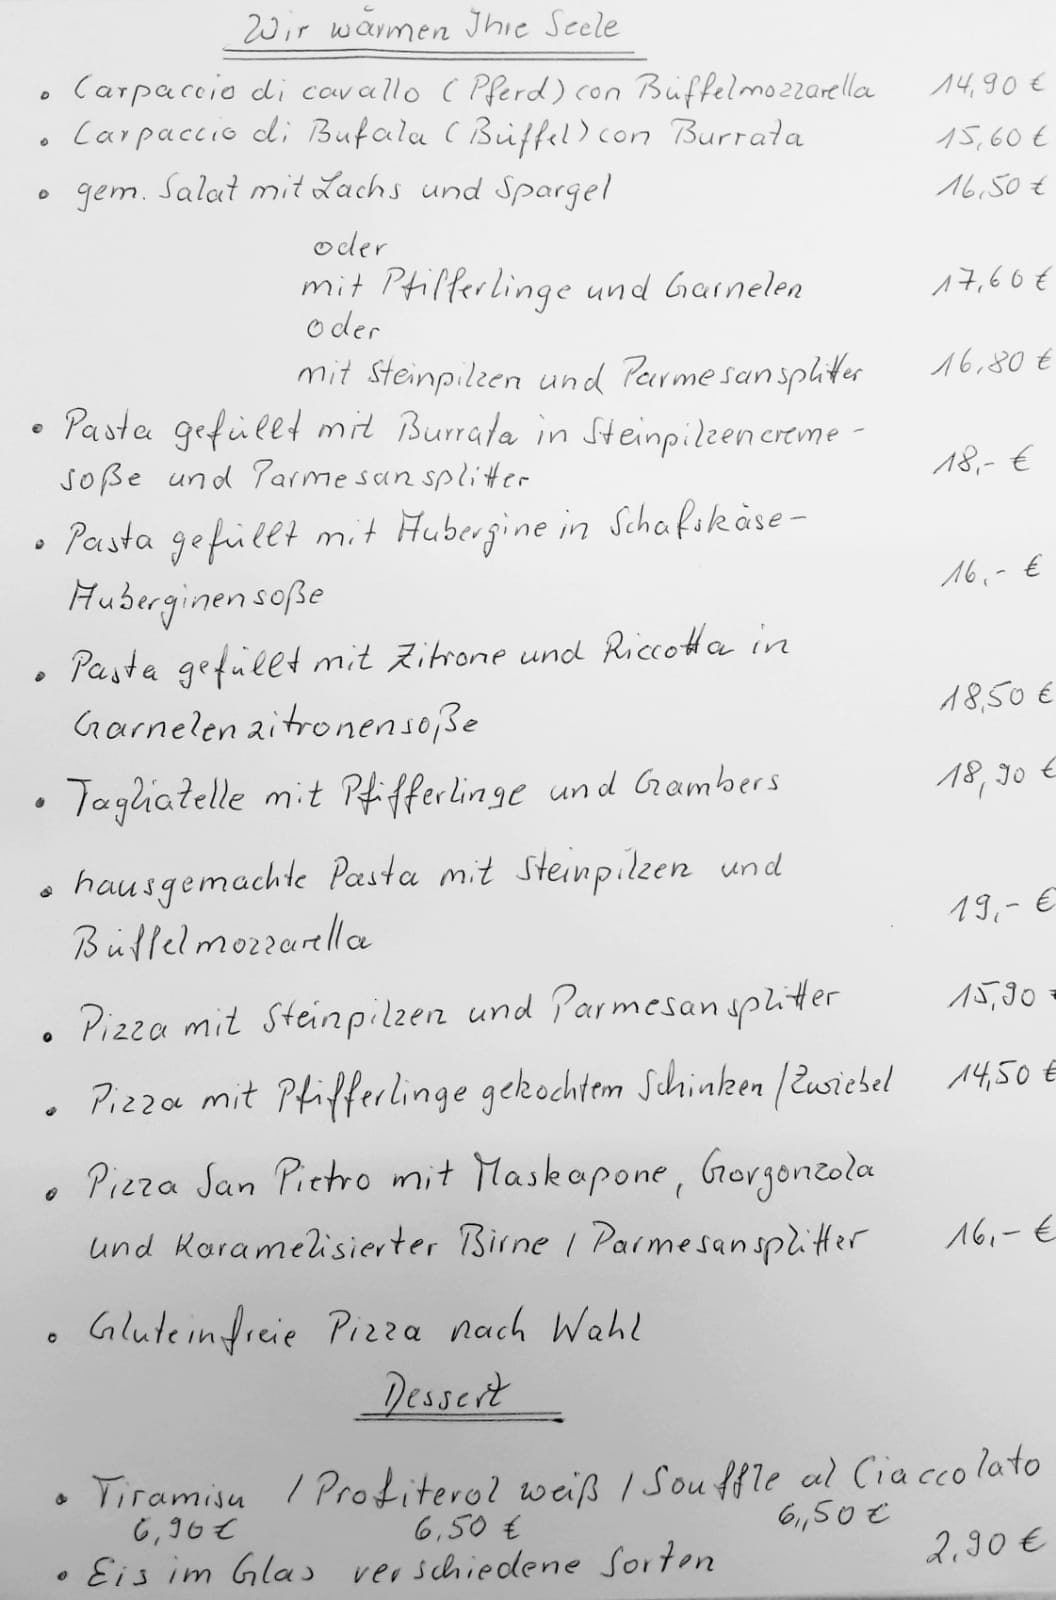 Wir wärmen Ihre Seele
• Carpaccio di cavallo (Pferd) con Büffelmozzarella 14,90 €
• Carpaccio di Bufala (Büffel) con Burrata 15,60 €
• gem. Salat mit Lachs und Spargel 16,50 €
oder
mit Pfifferlinge und Garnelen 17,60 €
oder
mit Steinpilzen und Parmesansplitter 16,80 €
• Pasta gefüllt mit Burrata in Steinpilzencreme-
soße und Parmesansplitter 18,- €
• Pasta gefüllt mit Aubergine in Schafskäse-
Auberginensoße 16,- €
• Pasta gefüllt mit Zitrone und Riccotta in
Garnelenzitronensoße 18,50 €
• Tagliatelle mit Pfifferlinge und Gambers 18,90 €
• hausgemachte Pasta mit Steinpilzen und
Büffelmozzarella 19,- €
• Pizza mit Steinpilzen und Parmesansplitter 15,90 €
• Pizza mit Pfifferlinge gekochtem Schinken / Zwiebel 14,50 €
• Pizza San Pietro mit Maskapone, Gorgonzola
und Karamelisierter Birne / Parmesansplitter 16,- €
• Gluteinfreie Pizza nach Wahl
Dessert
• Tiramisu / Profiterol weiß / Souffle al Ciaccolato
6,90 € 6,50 € 6,,50 €
• Eis im Glas verschiedene Sorten 2,90 €